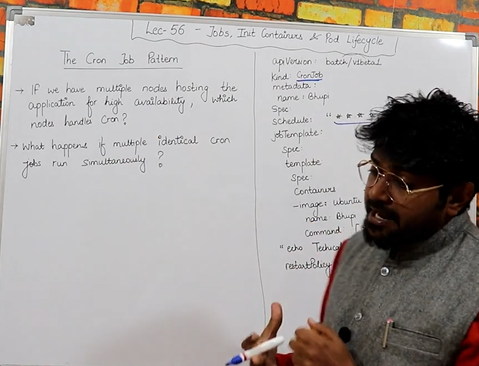 Lec-56 - Jobs, Init Containers & Pod Lifecycle
The Cron Job Pattern
→ If we have multiple nodes hosting the
application for high availability, which
nodes handles Cron?
→ What happens if multiple identical cron
jobs run simultaneously?
apiVersion: batch/v1beta1
Kind: CronJob
metadata:
name: Bhupi
Spec
Schedule: "* * * *
jobTemplate:
Spec:
template
Spec:
Containers
-image: ubuntu
name Bhupi
Command [
"echo
restartPolicy